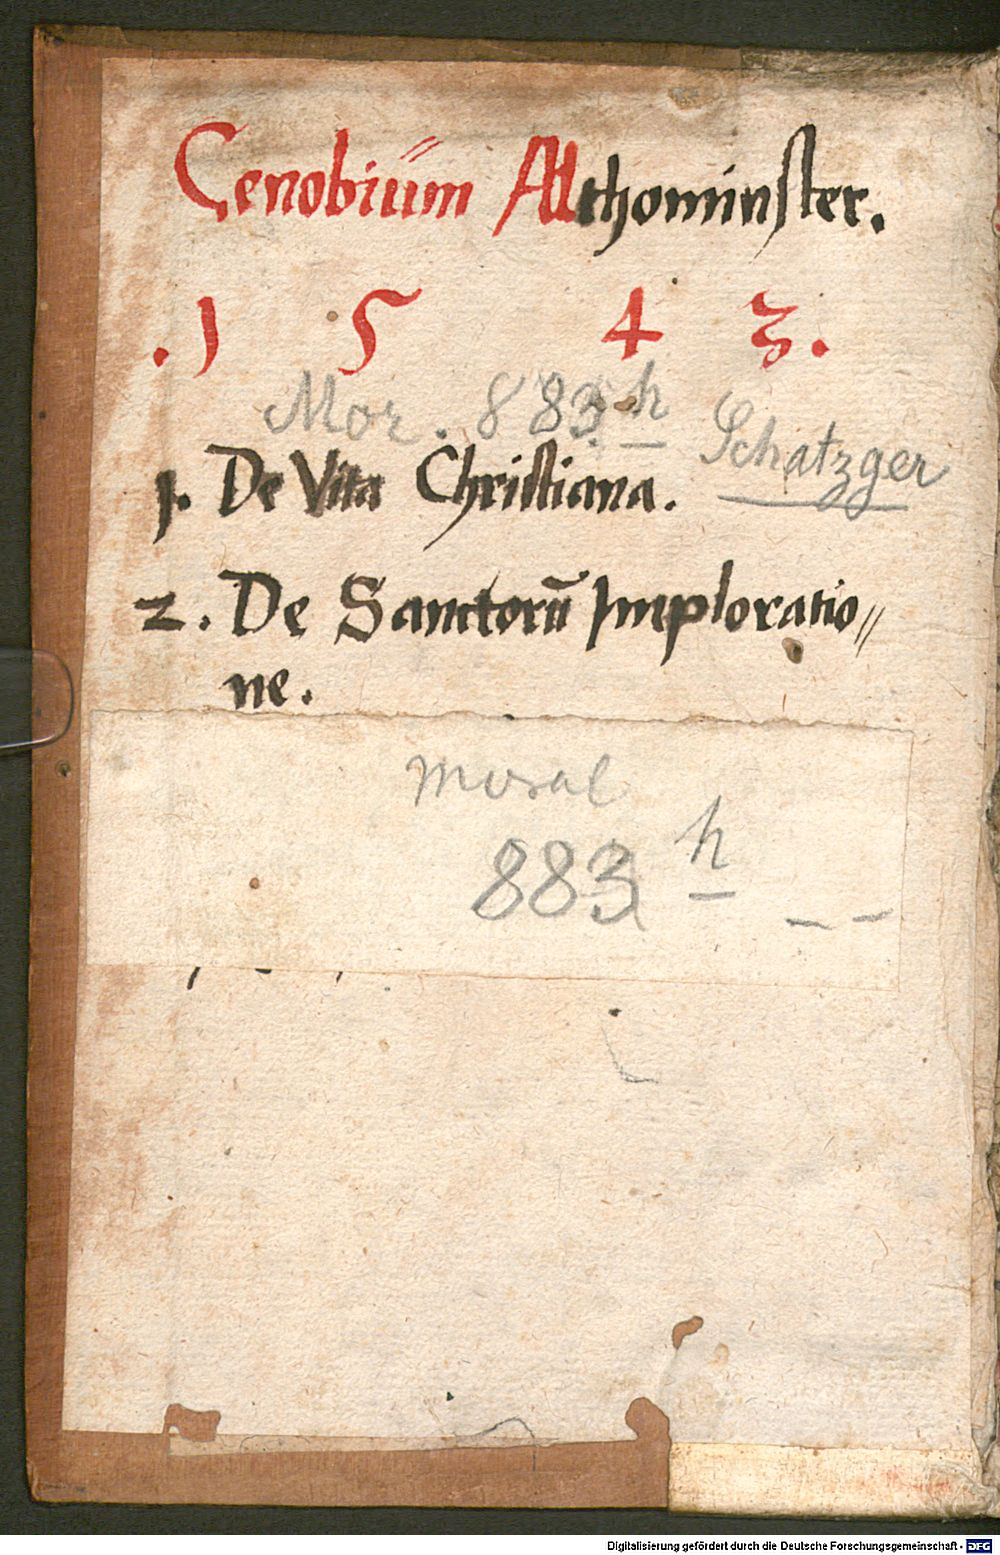 Cenobium Allthominster.
.1 5 4 3.
Mor. 883 h
Schatzger
1. De Vita Christiana.
2. De Sanctorū Imploratio〃
ne.
Moral
883 h
Digitalisierung gefördert durch die Deutsche Forschungsgemeinschaft - DFG